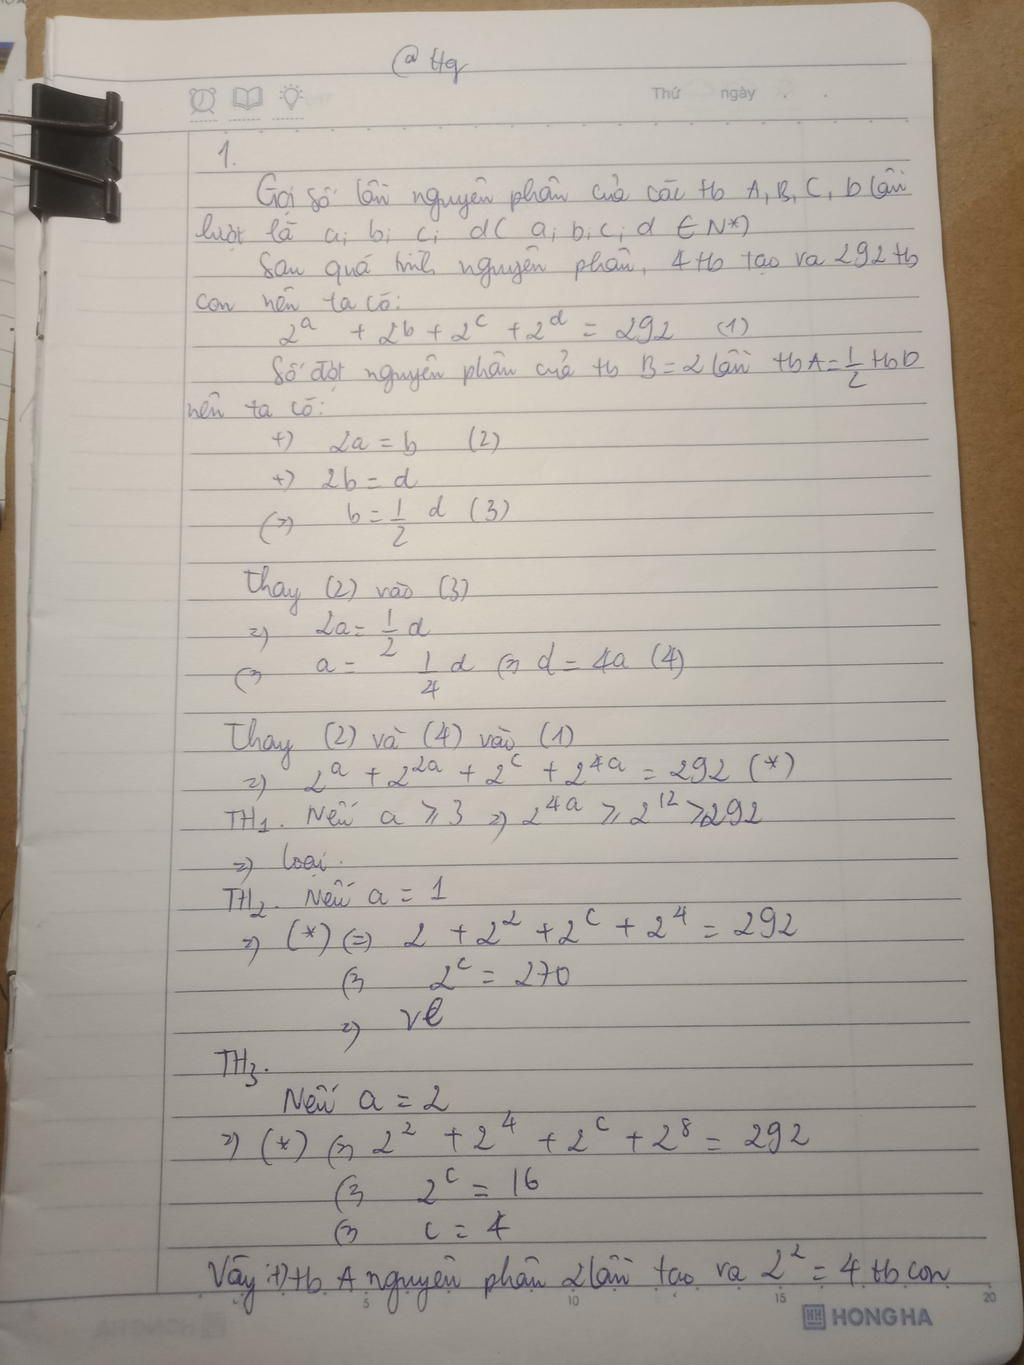 @Hg
Thứ ngày
1.
Gọi số lần nguyên phân của các tb A, B, C, D lần
lượt là a; b; c; d( a; b; c; d ∈ N*)
Sau quá trình nguyên phân, 4 tb tạo ra 292 tb
con nên ta có:
2^a + 2^b + 2^c + 2^d = 292 (1)
Số đợt nguyên phân của tb B = 2 lần tb A = 1/2 tb D
nên ta có:
+) 2a = b (2)
+) 2b = d
(=) b = 1/2 d (3)
Thay (2) vào (3)
=) 2a = 1/2 d
(=) a = 1/4 d (=) d = 4a (4)
Thay (2) và (4) vào (1)
=) 2^a + 2^2a + 2^c + 2^4a = 292 (*)
TH1. Nếu a ≥ 3 =) 2^4a ≥ 2^12 > 292
=) loại.
TH2. Nếu a = 1
=) (*) (=) 2 + 2^2 + 2^c + 2^4 = 292
(=) 2^c = 270
=) vl
TH3.
Nếu a = 2
=) (*) (=) 2^2 + 2^4 + 2^c + 2^8 = 292
(=) 2^c = 16
(=) c = 4
Vậy: +) tb A nguyên phân 2 lần tạo ra 2^2 = 4 tb con
5 10 15 20
HONG HA